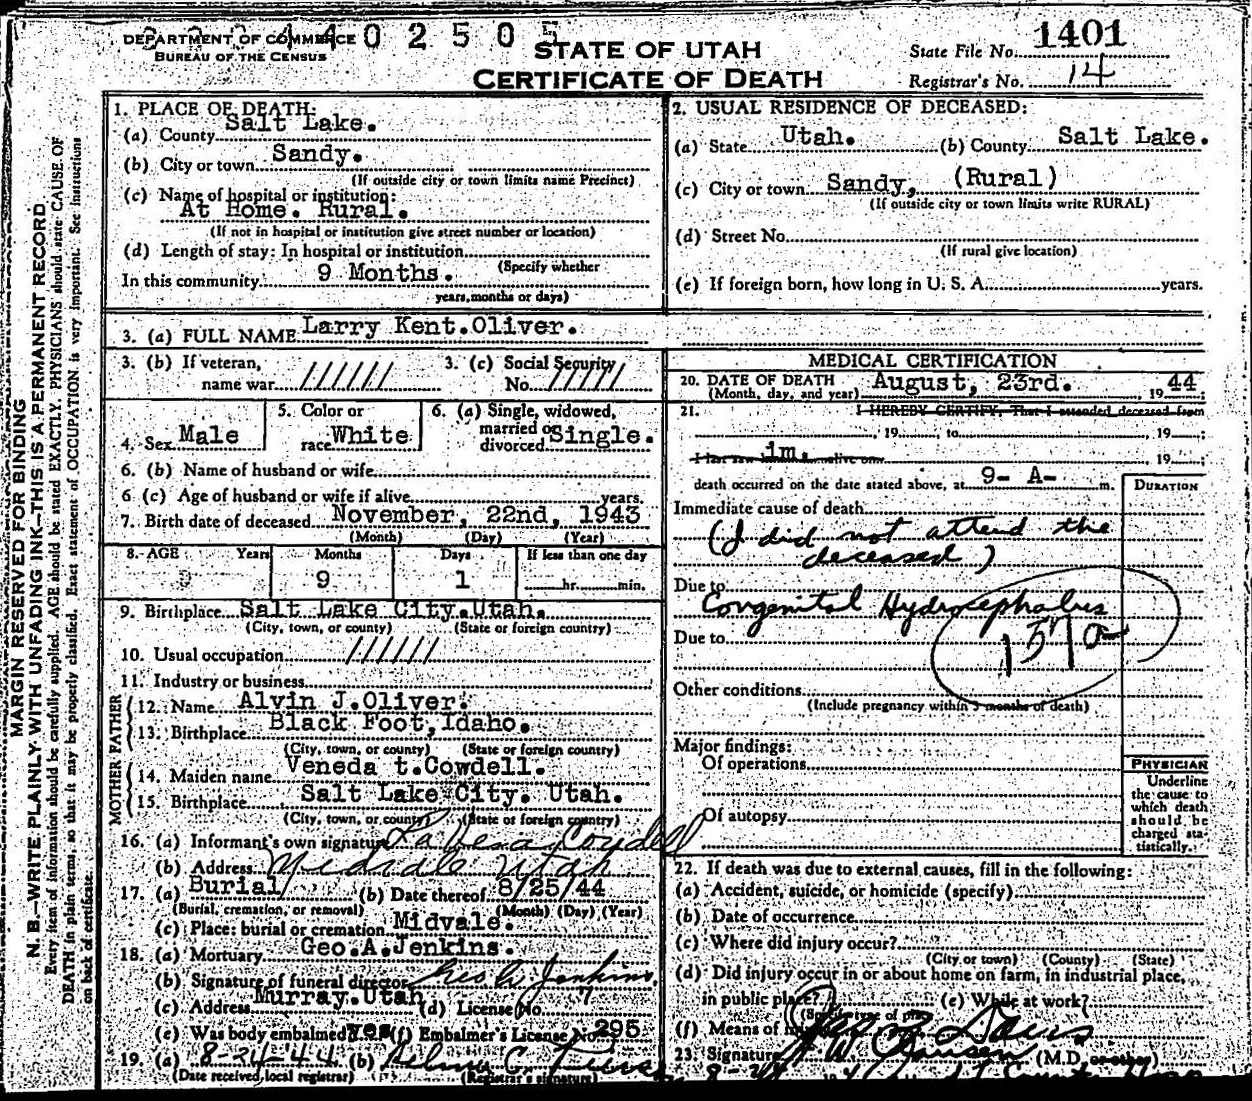 DEPARTMENT OF COMMERCE
BUREAU OF THE CENSUS
0 2 5 0 5
STATE OF UTAH
CERTIFICATE OF DEATH
State File No. 1401
Registrar's No. 14
MARGIN RESERVED FOR BINDING
N. B.—WRITE PLAINLY WITH UNFADING INK—THIS IS A PERMANENT RECORD
Every item of information should be carefully supplied. AGE should be stated EXACTLY. PHYSICIANS should state CAUSE OF
DEATH in plain terms, so that it may be properly classified. Exact statement of OCCUPATION is very important. See instructions
on back of certificate.
1. PLACE OF DEATH:
(a) County Salt Lake.
(b) City or town Sandy.
(If outside city or town limits name Precinct)
(c) Name of hospital or institution:
At Home. Rural.
(If not in hospital or institution give street number or location)
(d) Length of stay: In hospital or institution
(Specify whether
In this community 9 Months.
years, months or days)
2. USUAL RESIDENCE OF DECEASED:
(a) State Utah. (b) County Salt Lake.
(c) City or town Sandy, (Rural)
(If outside city or town limits write RURAL)
(d) Street No.
(If rural give location)
(e) If foreign born, how long in U. S. A. years.
3. (a) FULL NAME Larry Kent.Oliver.
3. (b) If veteran, name war //////
3. (c) Social Security No. /////
4. Sex Male
5. Color or race White
6. (a) Single, widowed, married or divorced Single.
6. (b) Name of husband or wife
6 (c) Age of husband or wife if alive years.
7. Birth date of deceased November, 22nd, 1943
(Month) (Day) (Year)
8. AGE Years Months Days If less than one day
9 1 hr. min.
9. Birthplace Salt Lake City.Utah.
(City, town, or county) (State or foreign country)
10. Usual occupation //////
11. Industry or business
FATHER
12. Name Alvin J.Oliver.
13. Birthplace Black Foot,Idaho.
(City, town, or county) (State or foreign country)
MOTHER
14. Maiden name Veneda t.Cowdell.
15. Birthplace Salt Lake City. Utah.
(City, town, or county) (State or foreign country)
16. (a) Informant's own signature Cowdell
(b) Address Midvale Utah
17. (a) Burial (b) Date thereof 8/25/44
(Burial, cremation, or removal) (Month) (Day) (Year)
(c) Place: burial or cremation Midvale.
18. (a) Mortuary Geo.A.Jenkins.
(b) Signature of funeral director Geo A Jenkins
(c) Address Murray.Utah (d) License No. 7
(e) Was body embalmed? Yes (f) Embalmer's License No. 295
19. (a) 8-24-44 (b)
(Date received local registrar) (Registrar's signature)
MEDICAL CERTIFICATION
20. DATE OF DEATH August, 23rd. 19 44
(Month, day, and year)
21. I HEREBY CERTIFY, That I attended deceased from
, 19 , to , 19 ;
I last saw im. alive on 19 ;
death occurred on the date stated above, at 9- A- m.
DURATION
Immediate cause of death
(I did not attend the
deceased)
Due to
Congenital Hydrocephalus
Due to 157a
Other conditions
(Include pregnancy within 3 months of death)
Major findings:
Of operations
Of autopsy
PHYSICIAN
Underline
the cause to
which death
should be
charged sta-
tistically.
22. If death was due to external causes, fill in the following:
(a) Accident, suicide, or homicide (specify)
(b) Date of occurrence
(c) Where did injury occur?
(City or town) (County) (State)
(d) Did injury occur in or about home on farm, in industrial place,
in public place? (e) While at work?
(Specify type of place)
(f) Means of
23. Signature (M.D. or other)